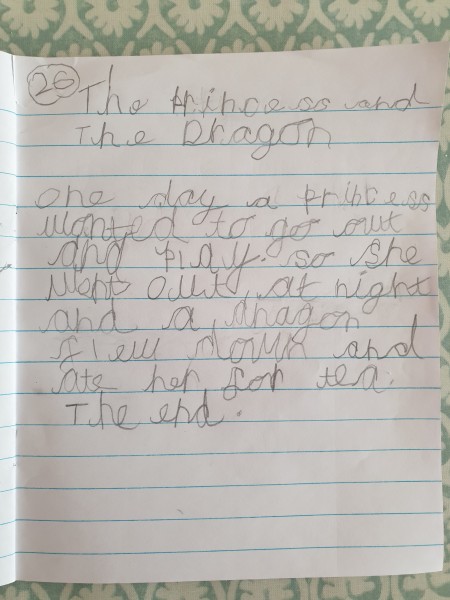 26 The Princess and
The Dragon
One day a princess
wanted to go out
and play. so she
went out at night
and a dragon
flew down and
ate her for tea.
The end.